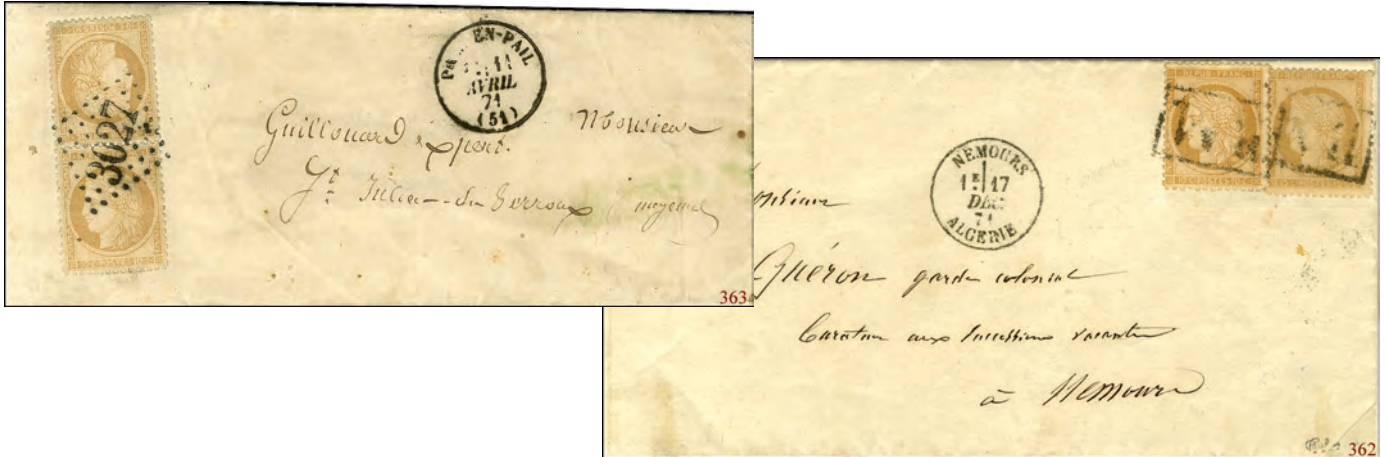 3027
EN-PAIL
11
AVRIL
71
(51)
Guillouard expert. Monsieur
St Julien-du-Terroux mayenne
363
REPUB. FRANC.
10 C. POSTES 10 C.
NEMOURS
1E 17
DEC.
71
ALGERIE
Monsieur
Guéron garde colonial
Curateur aux Successions vacantes
à Nemours
362